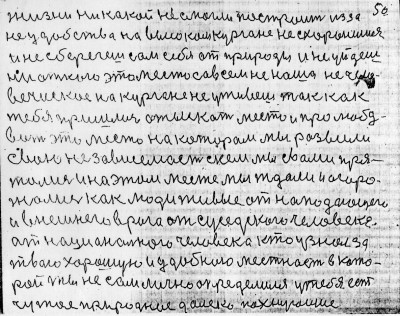 50
жизни никакой не смогли построит изза
не удобства на высоком кургане не схоронишся
и не сбережеш сам себя от природы и не уйдеш
это место совсем не наша не чело-
веческое на кургане не уживеш так как
тебя пришлиа отыскат место и про надо
ват это место на котором мы развили
свою не зависемаст с кем мы свами пря-
талися и на этом месте мы ждали и агоро-
жались как люди живые от нападающего
и внешнего врага от суседского человека.
от нацианалного человека кто узнал за
твою хорошую и удобную местност в кото-
рой ты не сам лично определился у тебя ест
чутное природние далеко пахнущие